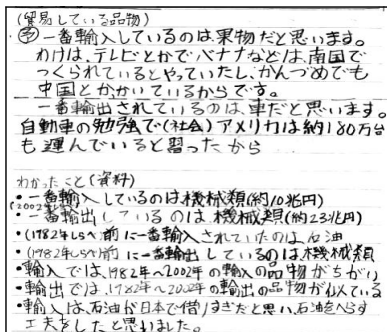 (貿易している品物)
予 一番輸入しているのは果物だと思います。
わけは、テレビとかでバナナなどは、南国で
つくられているとやっていたし、かんづめでも
中国とかかいているからです。
一番輸出されているのは、車だと思います。
自動車の勉強で(社会)アメリカは約180万台
も運んでいると習ったから
わかったこと(資料)
・一番輸入しているのは機械類(約10兆円)
(2002年しらべ)
・一番輸出しているのは機械類(約23兆円)
・(1982年しらべ)前に一番輸入されていたのは石油
・(1982年しらべ)前に一番輸出しているのは機械類
・輸入では、1982年~2002年の輸入の品物がちがい
・輸出では、1982年~2002年の輸出の品物が似ている
・輸入は、石油が日本で借りすぎだと思い、石油をへらす
工夫をしたと思いました。